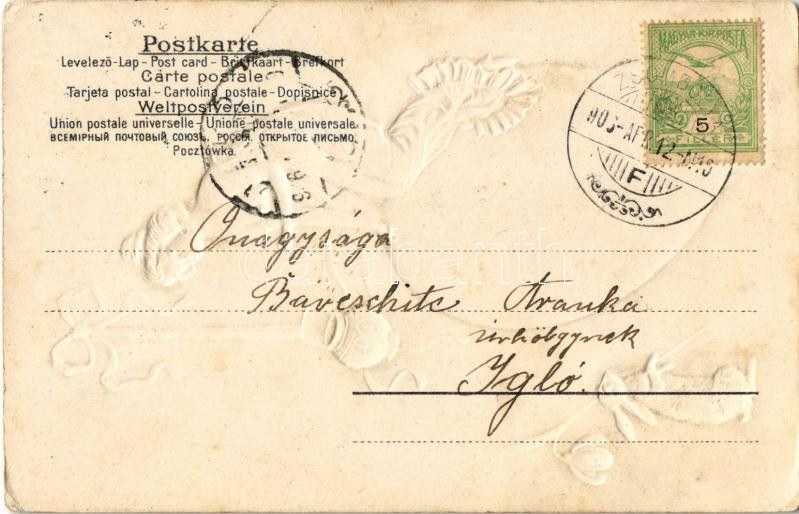 Postkarte
Levelező-Lap - Post card - Briefkaart - Brefkort
Cárte postale
Tarjeta postal - Cartolina postale - Dopisnice
Weltpostverein
Union postale universelle - Unione postale universale
ВСЕМІРНЫЙ ПОЧТОВЫЙ СОЮЗЪ, РОССІЯ, ОТКРЫТОЕ ПИСЬМО.
Pocztówka.
MAGYAR KIR. POSTA
5
FILLÉR
905 - APR 12
F
Őnagysága
Aranka
Igló.